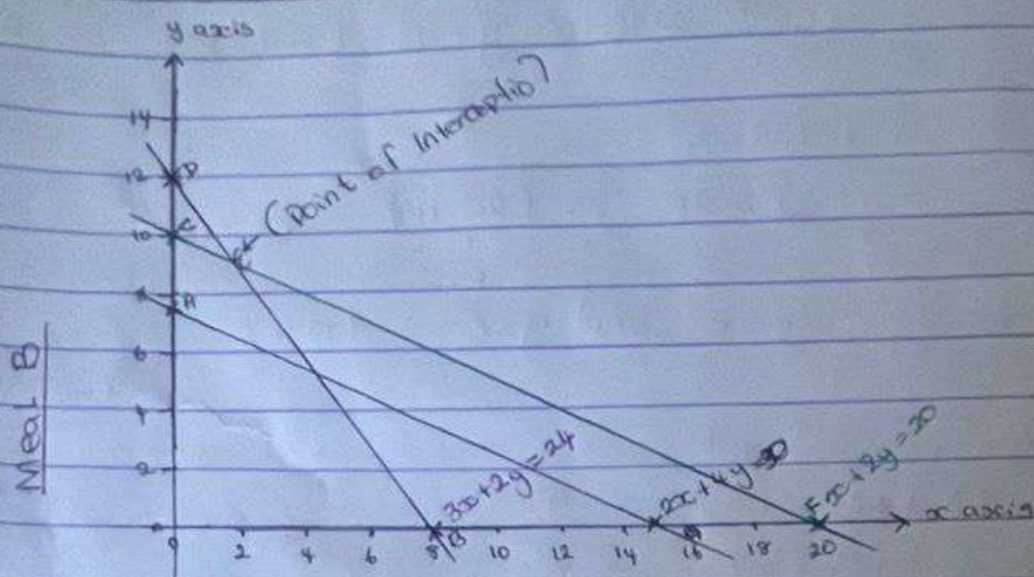 y axis
14
12 D
(Point of Interceptio)
10 C
A
6
4
2
Meal B
3x+2y=24
2x+4y=30
F x+2y=20
x axis
0 2 4 6 8 B 10 12 14 16 18 20